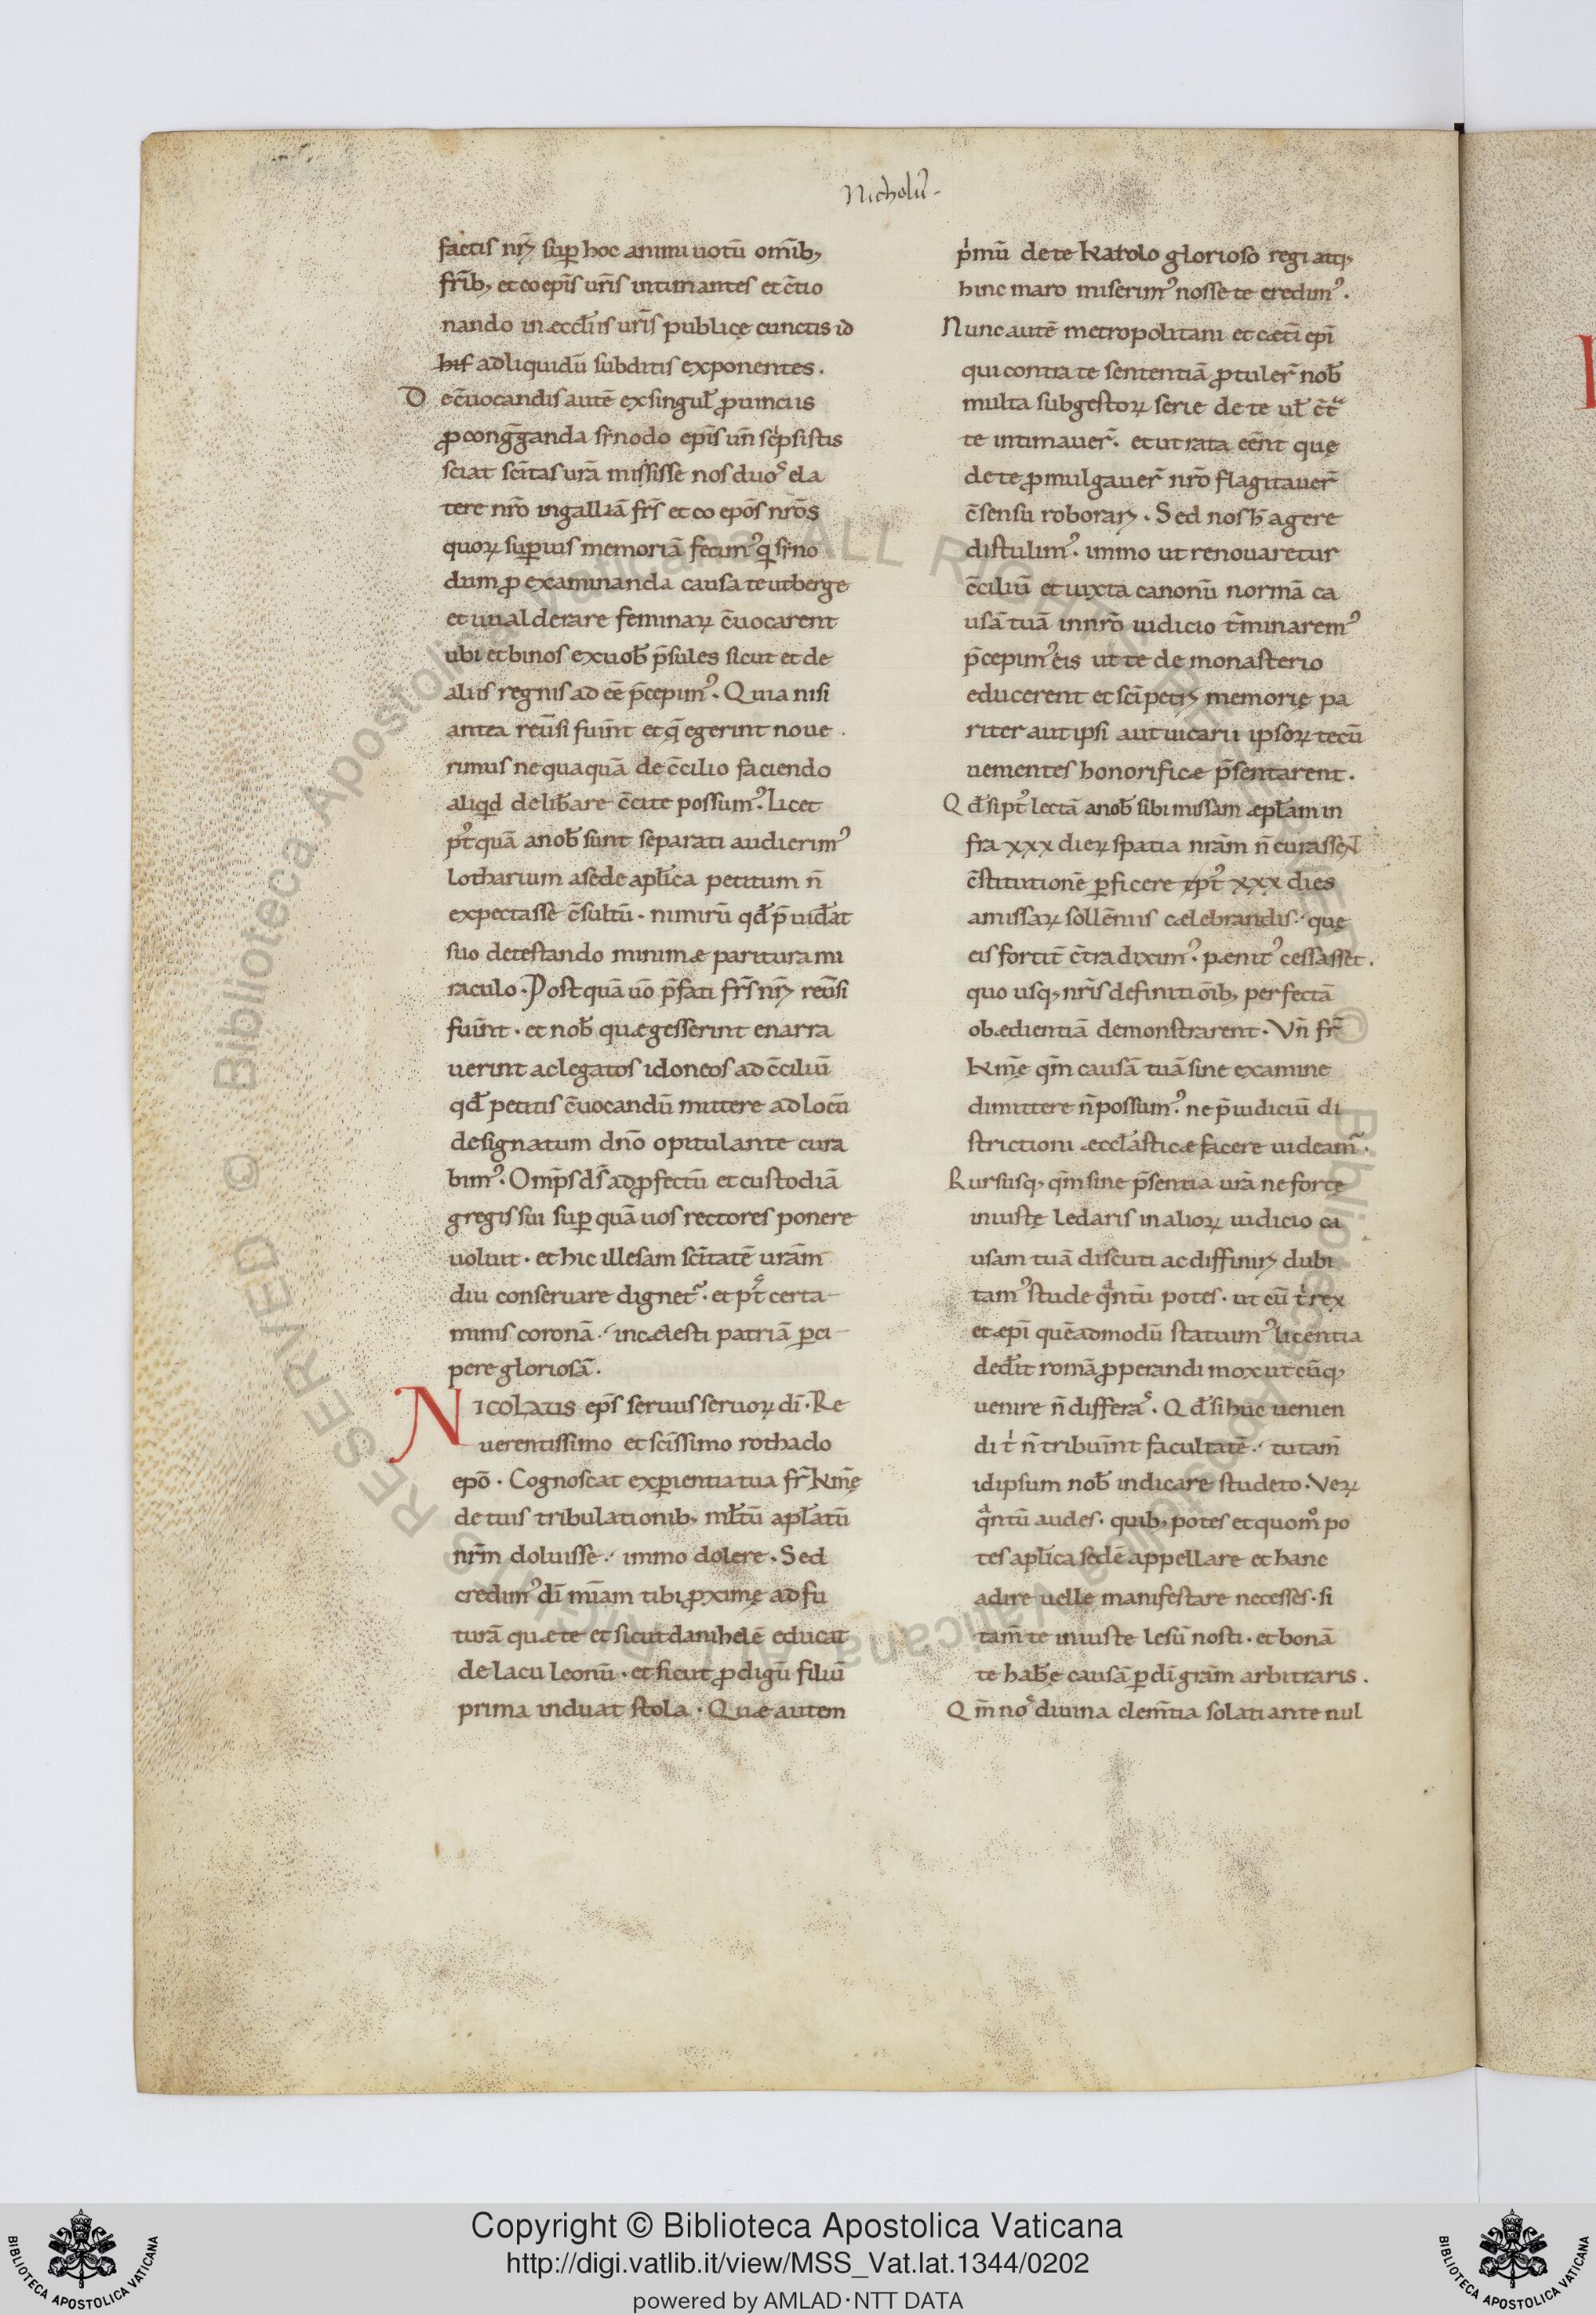 Nicholū.
factis nr̄ı sup hoc animi uotū omīb;
fr̄ib; et coep̄is ur̄is intimantes et c̄tio
nando inæccl̄iis ur̄is publicę cunctis id
his adliquidū subditis exponentes.
De c̄uocandis autē exsingul̄ ꝓuinciis
ꝓcongḡganda synodo ep̄is un̄ sc̄psistis
sciat sc̄itas ur̄a misisse nos duoˢ ela
tere nr̄o ingalliā fr̄s et co ep̄os nr̄os
quoꝝ supius memoriā fecimꝰ q̄ syno
dum ꝓ examinanda causa teutberge
et uualderare feminaꝝ c̄uocarent
ubi et binos exuob̄ p̄sules sicut et de
aliis regnis ad eē p̄cepimꝰ. Quia nisi
antea reūsi fuīnt et q̄ egerint noue
rimus nequaquā de c̄cilio faciendo
aliqd delib̄are c̄cite possumꝰ. Licet
pt̄ꝰquā anob̄ sunt separati audierimꝰ
lotharium asede apl̄ica petitum n̄
expectasse c̄sultū. nimirū qd̄ p̄uid̄at
suo detestando minimæ paritura mi
raculo. Postquā uō p̄fati fr̄s nr̄ı reūsi
fuīnt. et nob̄ quægesserint enarra
uerint ac legatos idoneos ad c̄ciliū
qd̄ petitis c̄uocandū mittere ad locū
designatum dn̄o opitulante cura
bimꝰ. Omp̄s ds̄ adꝓfectū et custodiā
gregis sui sup quā uos rectores ponere
uoluit. et hic illesam sc̄itatē ur̄am
diu conseruare dignet᷑. et pt̄ certa-
minis coronā. incælesti patriā ꝑci-
pere gloriosā.
NICOLAUS ep̄s seruus seruoꝝ dī. Re
uerentissimo et sc̄issimo rothado
epō. Cognoscat exꝑientia tua fr̄ kmē
de tuis tribulationib; ml̄tū apl̄atū
nr̄m doluisse. immo dolere. Sed
credimꝰ dī mīam tibi ꝓximę adfu
turā quæ te et sicut danihelē educat
de lacu leonū. et sicut ꝓdigū filiū
prima induat stola. Quæ autem
p̍mū de te Karolo glorioso regi atq;
hincmaro miserimꝰ nosse te credimꝰ.
Nunc autē metropolitani et cæti epī
qui contra te sententiā ꝓtuler̄ nob̄
multa subgestoꝝ serie de te ul̄ c̄tᵃ
te intimauer̄. et ut rata eēnt quę
de te ꝓmulgauer̄ nr̄o flagitauer̄
c̄sensu roborarı. Sed nos h̄ agere
distulimꝰ. immo ut renouaretur
c̄ciliū et iuxta canonū normā ca
usā tuā in nr̄o iudicio t̄minaremꝰ
p̄cepimꝰ eis ut te de monasterio
educerent et sc̄i petrı memorię pa
riter aut ipsi aut uicarii ipsoꝝ tecū
uementes honorificæ p̄sentarent.
Qd̄ si ptꝰ lectā anob̄ sibi missam æpl̄am in
fra xxx dieꝝ spatia nr̄am n̄ curassēt
c̄stitutionē ꝑficere ptꝰ xxx dies
amissaꝝ sollēniis cælebrandis. quę
eis fortit̄ c̄tradiximꝰ. pænitꝰ cessasset.
quo usq; nr̄is definitiōib; perfectā
obædientiā demonstrarent. Vn̄ fr̄
kmē qm̄ causā tuā sine examine
dimittere n̄ possumꝰ. ne p̄iudiciū di
strictioni æccl̄asticæ facere uideam᷑.
Rursusq; qm̄ sine p̄sentia ur̄a ne forte
iniustę ledaris in alioꝝ iudicio ca
usam tuā discuti ac diffinirı dubi
tamꝰ stude qᵃntū potes. ut cū t̍ rex
et æpī quēadmodū statuimꝰ licentia
ded̄it romā ꝓperandi mox ut cūq;
uenire n̄ differaˢ. Qd̄ si huc uenien
di t̍ n̄ tribuīnt facultatē. tu tam̄
idipsum nob̄ indicare studeto. Veꝝ
qᵃntū audes. quib; potes et quomº po
tes apl̄ica sedē appellare et hanc
adire uelle manifestare necesses. si
tam̄ te iniuste lesū nosti. et bonā
te hab̄e causā ꝑ dī gr̄am arbitraris.
Qm̄ noˢ diuina clem̄tia solati ante nul
Copyright © Biblioteca Apostolica Vaticana
http://digi.vatlib.it/view/MSS_Vat.lat.1344/0202
powered by AMLAD·NTT DATA